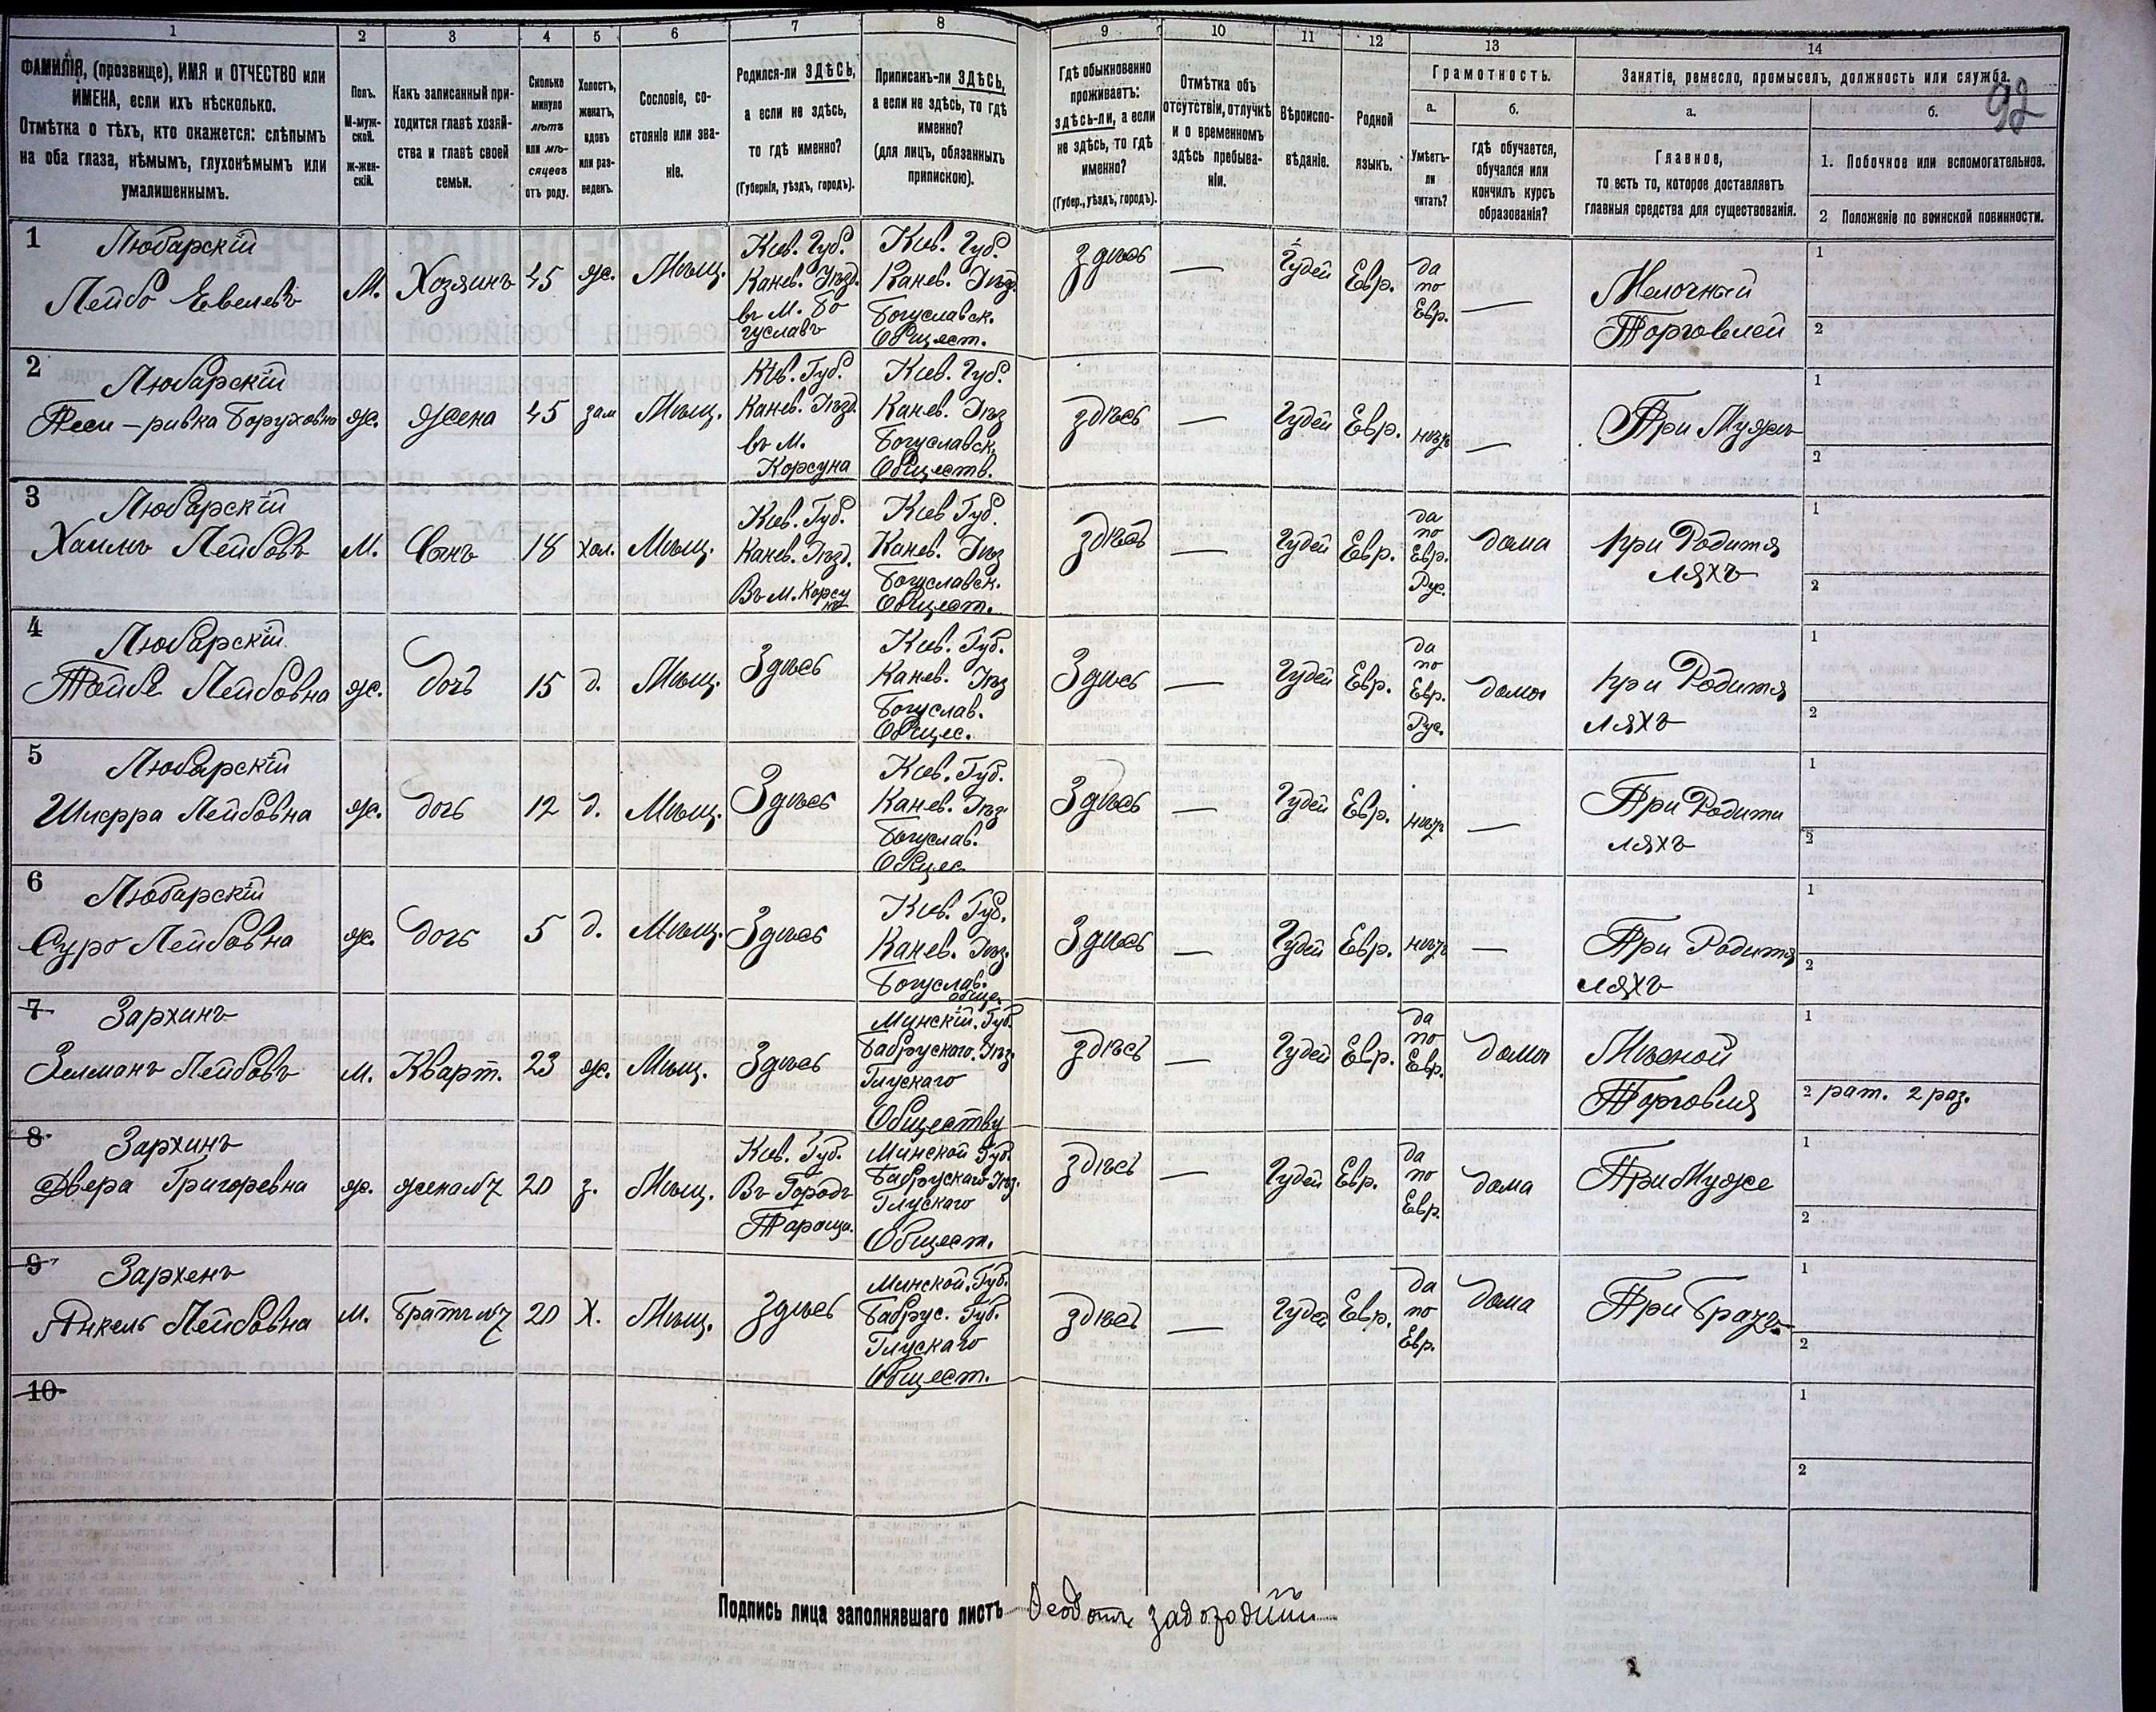 1 2 3 4 5 6 7 8 9 10 11 12 13 14
ФАМИЛІЯ, (прозвище), ИМЯ и ОТЧЕСТВО или
ИМЕНА, если ихъ нѣсколько.
Отмѣтка о тѣхъ, кто окажется: слѣпымъ
на оба глаза, нѣмымъ, глухонѣмымъ или
умалишеннымъ.
Полъ.
М-муж-
ской.
ж-жен-
скій.
Какъ записанный при-
ходится главѣ хозяй-
ства и главѣ своей
семьи.
Сколько
минуло
лѣтъ
или мѣ-
сяцевъ
отъ роду.
Холостъ,
женатъ,
вдовъ
или раз-
веденъ.
Сословіе, со-
стояніе или зва-
ніе.
Родился-ли ЗДѢСЬ,
а если не здѣсь,
то гдѣ именно?
(Губернія, уѣздъ, городъ).
Приписанъ-ли ЗДѢСЬ,
а если не здѣсь, то гдѣ
именно?
(для лицъ, обязанныхъ
припискою).
Гдѣ обыкновенно
проживаетъ:
здѣсь-ли, а если
не здѣсь, то гдѣ
именно?
(Губер., уѣздъ, городъ).
Отмѣтка объ
отсутствіи, отлучкѣ
и о временномъ
здѣсь пребыва-
ніи.
Вѣроиспо-
вѣданіе.
Родной
языкъ.
Грамотность.
а.
Умѣетъ-
ли
читать?
б.
гдѣ обучается,
обучался или
кончилъ курсъ
образованія?
Занятіе, ремесло, промыселъ, должность или служба.
92
а.
Главное,
то есть то, которое доставляетъ
главныя средства для существованія.
б.
1. Побочное или вспомогательное.
2 Положеніе по воинской повинности.
1
Любарскій
Лейбо Евелевъ
М.
Хозяинъ
45
ж.
Мѣщ.
Кіев. Губ.
Канев. Уѣзд.
въ М. Бо
гуславъ
Кіев. Губ.
Канев. Уѣзд.
Богуславск.
Общест.
Здѣсь
—
Іудей
Евр.
да
по
Евр.
—
Мелочный
Торговлей
1
2
2
Любарскій
Песи-ривка Боруховна
ж.
жена
45
зам
Мѣщ.
Кіев. Губ
Канев. Уѣзд.
въ М.
Корсуна
Кіев. Губ.
Канев. Уѣз
Богуславск.
Обществ.
здѣсь
—
Іудей
Евр.
нѣтъ
—
При Мужѣ
1
2
3
Любарскій
Хаимъ Лейбовъ
М.
Сынъ
18
хол.
Мѣщ.
Кіев. Губ.
Канев. Уѣзд.
Въ М. Корсу
нѣ
Кіев Губ.
Канев. Уѣз
Богуславск.
Общест.
здѣсь
—
Іудей
Евр.
да
по
Евр.
Рус.
дома
при Родите
ляхъ
1
2
4
Любарскій
Тойба Лейбовна
ж.
дочь
15
д.
Мѣщ.
Здѣсь
Кіев. Губ.
Канев. Уѣз
Богуслав.
Общес.
Здѣсь
—
Іудей
Евр.
да
по
Евр.
Рус.
дома
при Родите
ляхъ
1
2
5
Любарскій
Шифра Лейбовна
ж.
дочь
12
д.
Мѣщ.
Здѣсь
Кіев. Губ.
Канев. Уѣз.
Богуслав.
Общес.
Здѣсь
—
Іудей
Евр.
нѣтъ
—
При Родити
ляхъ
1
2
6
Любарскій
Суро Лейбовна
ж.
дочь
5
д.
Мѣщ.
Здѣсь
Кіев. Губ.
Канев. Уѣз.
Богуслав.
обще.
Здѣсь
—
Іудей
Евр.
нѣтъ
—
При Родитя
ляхъ
1
2
7
Зархинъ
Зелманъ Лейбовъ
М.
Кварт.
23
ж.
Мѣщ.
Здѣсь
Мунскій. Губ.
Бабруского. Уѣз
Глускаго
Обществу
здѣсь
—
Іудей
Евр.
да
по
Евр.
дома
Мѣсной
Торговля
1
2 рат. 2 раз.
8
Зархинъ
Двера Григоревна
ж.
жена №7
20
з.
Мѣщ.
Кіев. Губ.
Въ Городѣ
Тараща.
Минской Губ.
Бабрускаго Уѣз.
Глускаго
Общест.
здѣсь
—
Іудей
Евр.
да
по
Евр.
дома
При Муже
1
2
9
Зархенъ
Янкель Лейбовна
М.
Братъ №7
20
Х.
Мѣщ.
здѣсь
Минской. Губ.
Бабрус. Губ.
Глускаго
Общест.
здѣсь
—
Іудей
Евр.
да
по
Евр.
дома
При Братѣ
1
2
10
1
2
Подпись лица заполнявшаго листъ
2